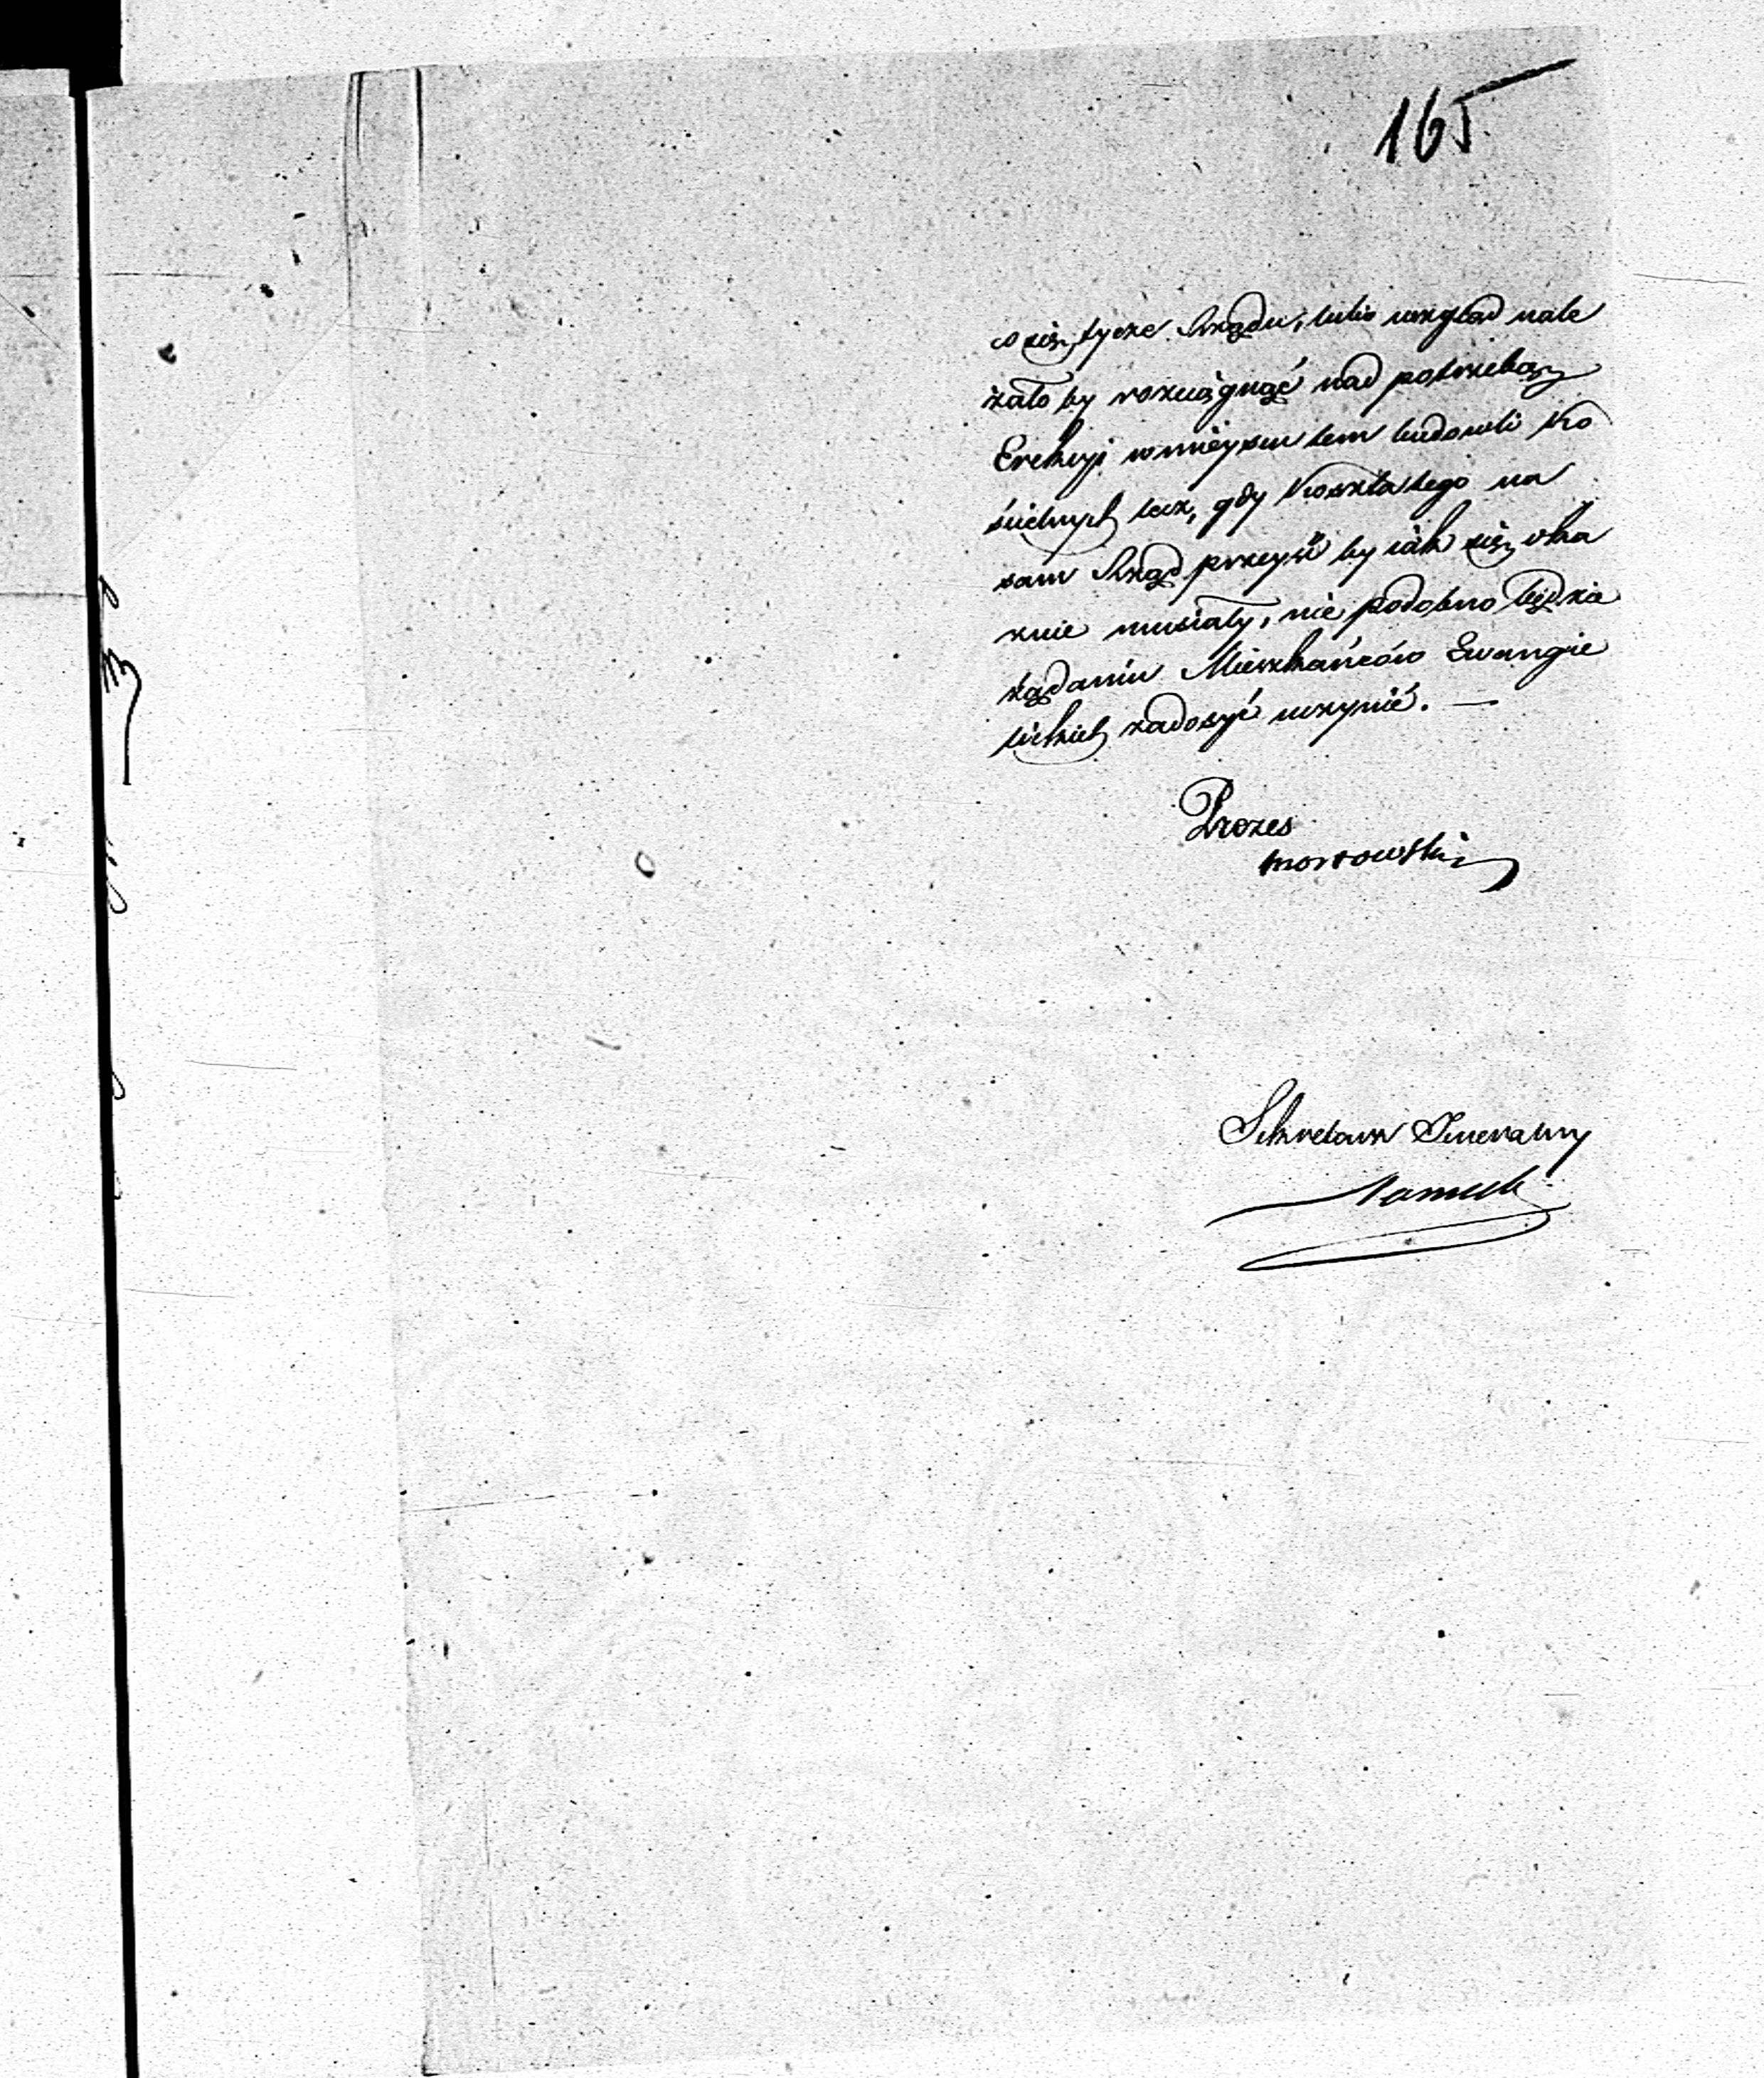 165
co się tycze Rządu, tutio wzgląd nale
żało by rozciągnąć nad potrzebą
Erekcyi w mieyscu tem budowli Ko
ścielnych lecz, gdy Koszta tego na
sam Rząd przeyść by iak się oka
znie musiały, nie podobno będzie
żądaniu Mieszkańców Ewangie
lickich zadosyć uczynić. —
Prezes
Sekretarz Generalny